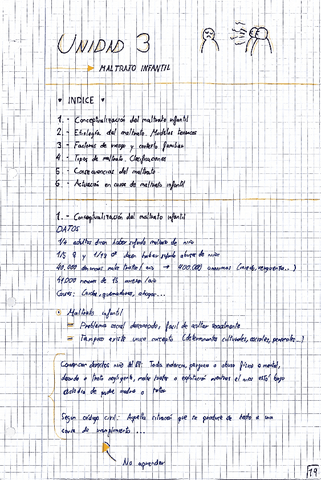 UNIDAD 3
MALTRATO INFANTIL
INDICE
1.- Conceptualización del maltrato infantil
2.- Etiología del maltrato. Modelos teóricos
3.- Factores de riesgo y contexto familiar
4.- Tipos de maltrato. Clasificaciones
5.- Consecuencias del maltrato
6.- Actuación en casos de maltrato infantil
1.- Conceptualización del maltrato infantil
DATOS
1/4 adultos dicen haber sufrido maltrato de niño
1/5 ♀ y 1/13 ♂ dicen haber sufrido abusos de niño
Maltrato infantil
Problema social, fácil de ocultar socialmente
Tampoco existe único concepto (determinantes culturales, sociales, personales...)
Convención derechos niño: Toda violencia, perjuicio o abuso físico o mental,
descuido o trato negligente, malos tratos o explotación mientras el niño está bajo
custodia de padre madre o tutor
Según código civil: Aquella situación que se produce de hecho a una
causa de incumplimiento ...
No aprender
19